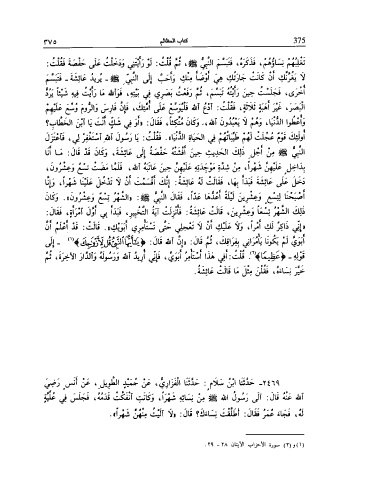 ٣٧٥ كتاب المظالم 375
تَغْلِبُهُمْ نِسَاؤُهُمْ، فَذَكَرَهُ، فَتَبَسَّمَ النَّبِيُّ ﷺ، ثُمَّ قُلْتُ: لَوْ رَأَيْتَنِي وَدَخَلْتُ عَلَى حَفْصَةَ فَقُلْتُ:
لَا يَغُرَّنَّكِ أَنْ كَانَتْ جَارَتُكِ هِيَ أَوْضَأَ مِنْكِ وَأَحَبَّ إِلَى النَّبِيِّ ﷺ - يُرِيدُ عَائِشَةَ - فَتَبَسَّمَ
أُخْرَى، فَجَلَسْتُ حِينَ رَأَيْتُهُ تَبَسَّمَ، ثُمَّ رَفَعْتُ بَصَرِي فِي بَيْتِهِ، فَوَاللهِ مَا رَأَيْتُ فِيهِ شَيْئًا يَرُدُّ
الْبَصَرَ، غَيْرَ أَهَبَةٍ ثَلَاثَةٍ، فَقُلْتُ: ادْعُ اللهَ فَلْيُوَسِّعْ عَلَى أُمَّتِكَ، فَإِنَّ فَارِسَ وَالرُّومَ وُسِّعَ عَلَيْهِمْ
وَأُعْطُوا الدُّنْيَا، وَهُمْ لَا يَعْبُدُونَ اللهَ. وَكَانَ مُتَّكِئًا، فَقَالَ: «أَوَ فِي شَكٍّ أَنْتَ يَا ابْنَ الْخَطَّابِ؟
أُولَئِكَ قَوْمٌ عُجِّلَتْ لَهُمْ طَيِّبَاتُهُمْ فِي الْحَيَاةِ الدُّنْيَا». فَقُلْتُ: يَا رَسُولَ اللهِ اسْتَغْفِرْ لِي، فَاعْتَزَلَ
النَّبِيُّ ﷺ مِنْ أَجْلِ ذَلِكَ الْحَدِيثِ حِينَ أَفْشَتْهُ حَفْصَةُ إِلَى عَائِشَةَ، وَكَانَ قَدْ قَالَ: مَا أَنَا
بِدَاخِلٍ عَلَيْهِنَّ شَهْرًا، مِنْ شِدَّةِ مَوْجِدَتِهِ عَلَيْهِنَّ حِينَ عَاتَبَهُ اللهُ، فَلَمَّا مَضَتْ تِسْعٌ وَعِشْرُونَ،
دَخَلَ عَلَى عَائِشَةَ فَبَدَأَ بِهَا، فَقَالَتْ لَهُ عَائِشَةُ: إِنَّكَ أَقْسَمْتَ أَنْ لَا تَدْخُلَ عَلَيْنَا شَهْرًا، وَإِنَّا
أَصْبَحْنَا لِتِسْعٍ وَعِشْرِينَ لَيْلَةً أَعُدُّهَا عَدًّا، فَقَالَ النَّبِيُّ ﷺ: «الشَّهْرُ تِسْعٌ وَعِشْرُونَ». وَكَانَ
ذَلِكَ الشَّهْرُ تِسْعًا وَعِشْرِينَ، قَالَتْ عَائِشَةُ: فَأُنْزِلَتْ آيَةُ التَّخْيِيرِ، فَبَدَأَ بِي أَوَّلَ امْرَأَةٍ، فَقَالَ:
«إِنِّي ذَاكِرٌ لَكِ أَمْرًا، وَلَا عَلَيْكِ أَنْ لَا تَعْجَلِي حَتَّى تَسْتَأْمِرِي أَبَوَيْكِ». قَالَتْ: قَدْ أَعْلَمُ أَنَّ
أَبَوَيَّ لَمْ يَكُونَا يَأْمُرَانِي بِفِرَاقِكَ، ثُمَّ قَالَ: «إِنَّ اللهَ قَالَ: ﴿يَٰٓأَيُّهَا ٱلنَّبِىُّ قُل لِّأَزْوَٰجِكَ﴾(١) - إِلَى
قَوْلِهِ - عَظِيمًا﴾(٢). قُلْتُ: أَفِي هَذَا أَسْتَأْمِرُ أَبَوَيَّ، فَإِنِّي أُرِيدُ اللهَ وَرَسُولَهُ وَالدَّارَ الْآخِرَةَ، ثُمَّ
خَيَّرَ نِسَاءَهُ، فَقُلْنَ مِثْلَ مَا قَالَتْ عَائِشَةُ.
٢٤٦٩- حَدَّثَنَا ابْنُ سَلَامٍ: حَدَّثَنَا الْفَزَارِيُّ، عَنْ حُمَيْدٍ الطَّوِيلِ، عَنْ أَنَسٍ رَضِيَ
اللهُ عَنْهُ قَالَ: آلَى رَسُولُ اللهِ ﷺ مِنْ نِسَائِهِ شَهْرًا، وَكَانَتِ انْفَكَّتْ قَدَمُهُ، فَجَلَسَ فِي عُلِّيَّةٍ
لَهُ، فَجَاءَ عُمَرُ فَقَالَ: أَطَلَّقْتَ نِسَاءَكَ؟ قَالَ: «لَا آلَيْتُ مِنْهُنَّ شَهْرًا».
(١) و(٢) سورة الأحزاب الآيتان ٢٨ - ٢٩.